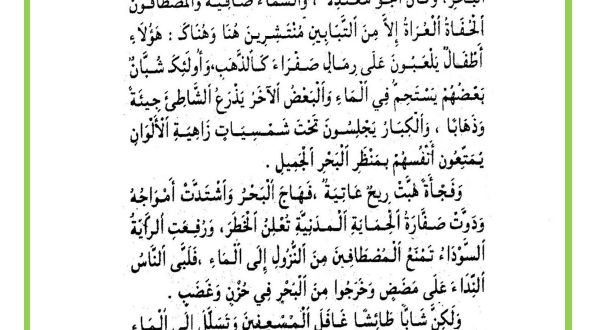 البَاكِرِ، وَكَانَ الْجَوُّ مُعْتَدِلًا، وَالسَّمَاءُ صَافِيَةً وَالْمُصْطَافُونَ
اَلْحُفَاةُ اَلْعُرَاةُ إِلاَّ مِنَ اَلتَّبَابِينِ مُنْتَشِرِينَ هُنَا وَهُنَاكَ : هَؤُلَاءِ
أَطْفَالٌ يَلْعَبُونَ عَلَى رِمَالٍ صَفْرَاءَ كَالذَّهَبِ، وَأُولَئِكَ شُبَّانٌ
بَعْضُهُمْ يَسْتَحِمُّ فِي اَلْمَاءِ وَاَلْبَعْضُ اَلْآخَرُ يَذْرَعُ اَلشَّاطِئَ جِيئَةً
وَذَهَابًا ، وَاَلْكِبَارُ يَجْلِسُونَ تَحْتَ شَمْسِيَاتٍ زَاهِيَةِ اَلْأَلْوَانِ
يُمَتِّعُونَ أَنْفُسَهُمْ بِمَنْظَرِ اَلْبَحْرِ اَلْجَمِيلِ .
وَفَجْأَةً هَبَّتْ رِيحٌ عَاتِيَةٌ ، فَهَاجَ اَلْبَحْرُ وَاَشْتَدَّتْ أَمْوَاجُهُ
وَدَوَّتْ صَفَّارَةُ اَلْحِمَايَةِ اَلْمَدَنِيَّةِ تُعْلِنُ اَلْخَطَرَ، وَرُفِعَتِ اَلرَّايَةُ
اَلسَّوْدَاءُ تَمْنَعُ اَلْمُصْطَافِينَ مِنَ اَلنُّزُولِ إِلَى اَلْمَاءِ ، فَلَبَّى اَلنَّاسُ
اَلنِّدَاءَ عَلَى مَضَضٍ وَخَرَجُوا مِنَ اَلْبَحْرِ فِي حُزْنٍ وَغَضَبٍ .
وَلَكِنَّ شَابًّا طَائِشًا غَافَلَ اَلْمُسْعِفِينَ وَتَسَلَّلَ إِلَى اَلْمَاءِ